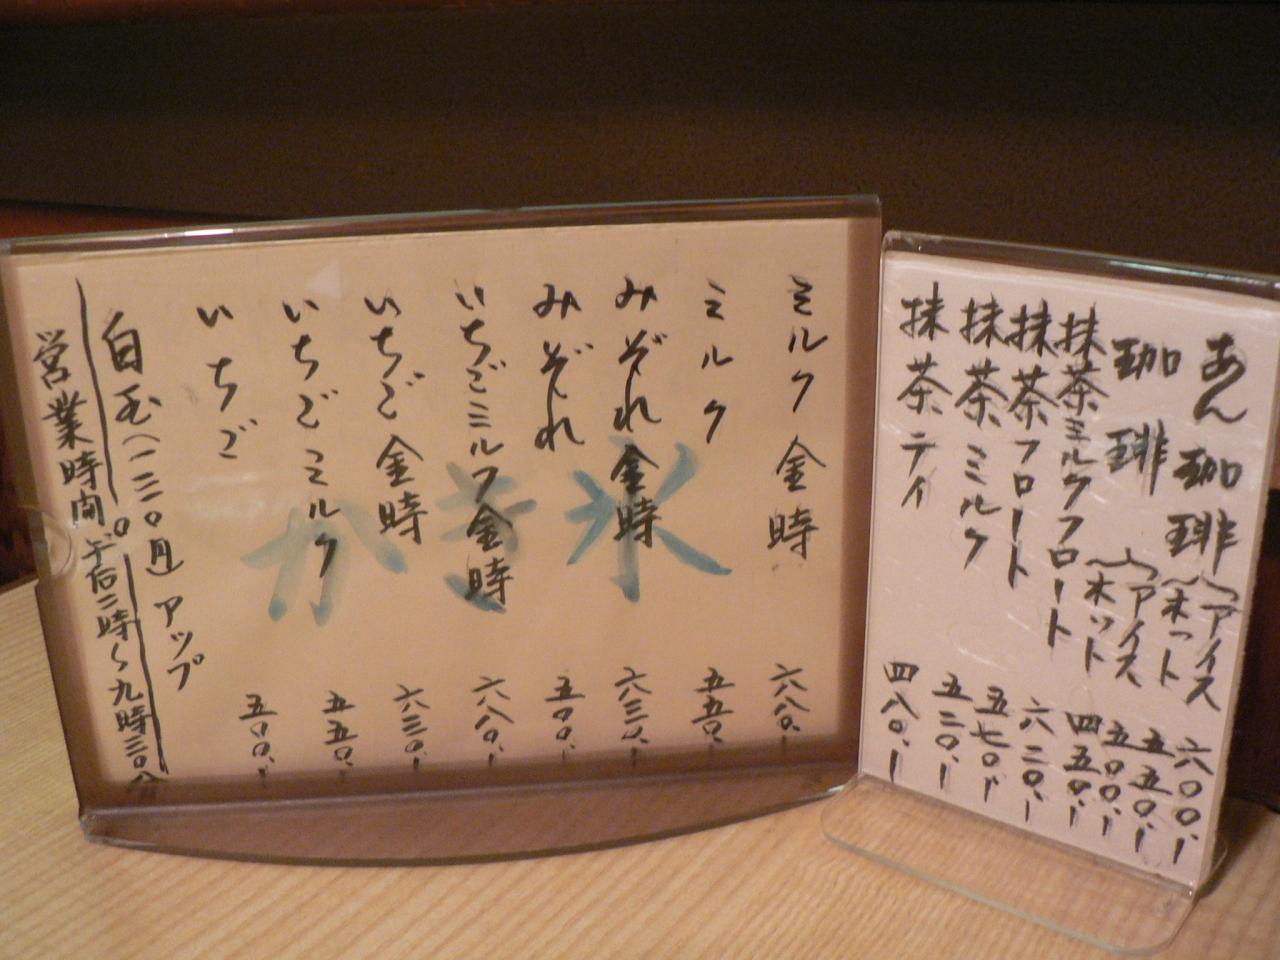 あん珈琲(アイス 六〇〇.-
ホット 五五〇.-
珈琲(アイス 五〇〇.-
ホット 四五〇.-
抹茶ミルクフロート 六二〇.-
抹茶フロート 五七〇.-
抹茶ミルク 五三〇.-
抹茶ティ 四八〇.-
かき氷
ミルク金時 六八〇.-
ミルク 五五〇.-
みぞれ金時 六三〇.-
みぞれ 五〇〇.-
いちごミルク金時 六八〇.-
いちご金時 六三〇.-
いちごミルク 五五〇.-
いちご 五〇〇.-
白玉(一二〇円)アップ
営業時間 午后二時〜九時三〇分